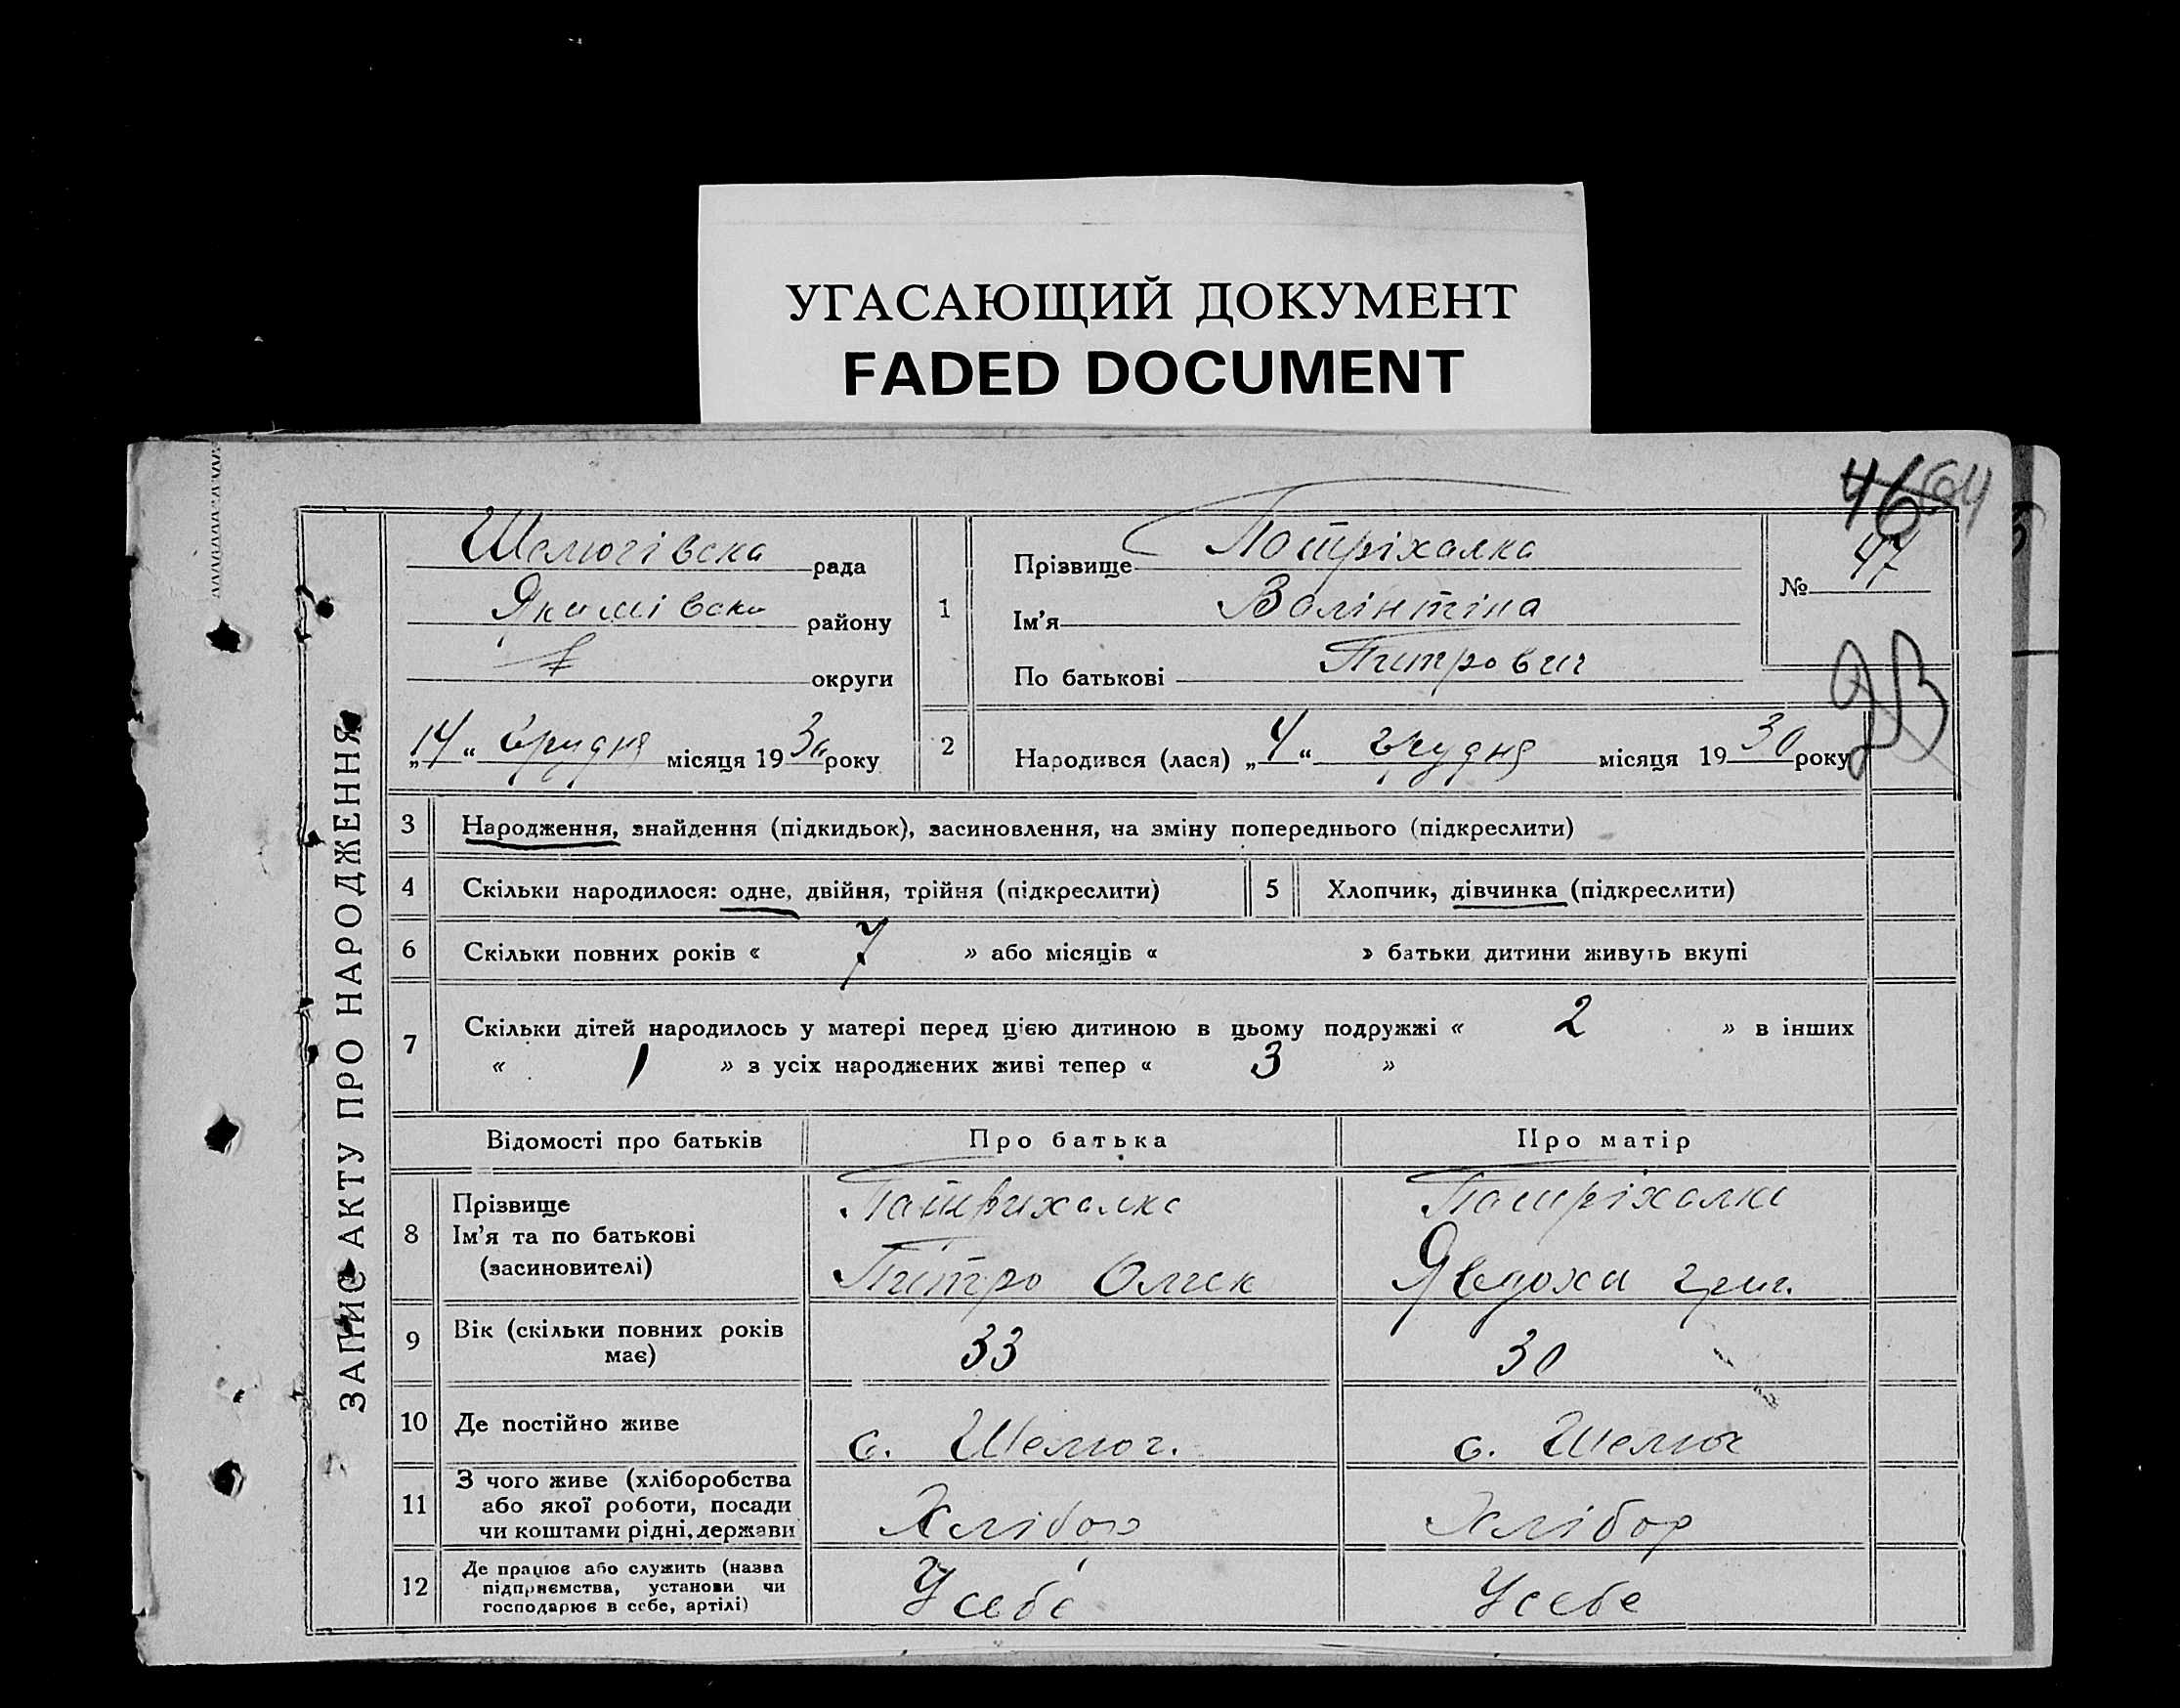 УГАСАЮЩИЙ ДОКУМЕНТ
FADED DOCUMENT
46 64
ЗАПИС АКТУ ПРО НАРОДЖЕННЯ
Шелюгівска рада
Якимівски району
округи
„14“ грудня місяця 1930 року
1
Прізвище Потріхалка
Ім'я Волінтіна
По батькові Питрович
№ 47
2
Народився (лася) „4“ грудня місяця 1930 року
3 Народження, знайдення (підкидьок), засиновлення, на зміну попереднього (підкреслити)
4 Скільки народилося: одне, двійня, трійня (підкреслити) 5 Хлопчик, дівчинка (підкреслити)
6 Скільки повних років « 7 » або місяців « » батьки дитини живуть вкупі
7 Скільки дітей народилось у матері перед цією дитиною в цьому подружжі « 2 » в інших
« 1 » з усіх народжених живі тепер « 3 »
Відомості про батьків Про батька Про матір
8 Прізвище Патрихалка Патріхалка
Ім'я та по батькові
(засиновителі) Питро Олек Явдоха григ.
9 Вік (скільки повних років має) 33 30
10 Де постійно живе с. Шелюг. с. Шелюг
11 З чого живе (хліборобства
або якої роботи, посади
чи коштами рідні, держави Хлібор Хлібор
12 Де працює або служить (назва
підприємства, установи чи
господарює в себе, артілі) Усебе Усебе